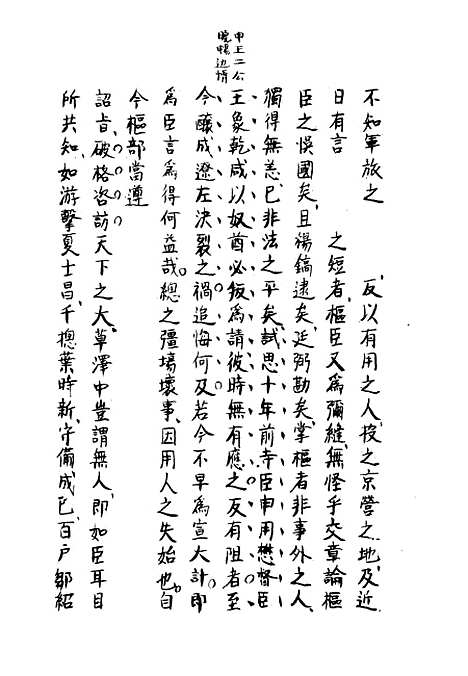 申王二公
曉暢边情
不知軍旅之　反以有用之人投之京營之地及近
日有言　之短者樞臣又為彌縫無怪乎交章論樞
臣之悞國矣且楊鎬逮矣廷弼勘矣掌樞者非事外之人
獨得無恙已非法之平矣試思十年前寺臣申用懋督臣
王象乾咸以奴酋必叛為請彼時無有應之反有阻者至
今釀成遼左決裂之禍追悔何及若今不早為宣大計即
為臣言為得何益哉總之彊埸壞事因用人之失始也自
今樞部當遵
詔旨破格咨訪天下之大草澤中豈謂無人即如臣耳目
所共知如游擊夏士昌千摠葉時新守備成已百戶鄒紹